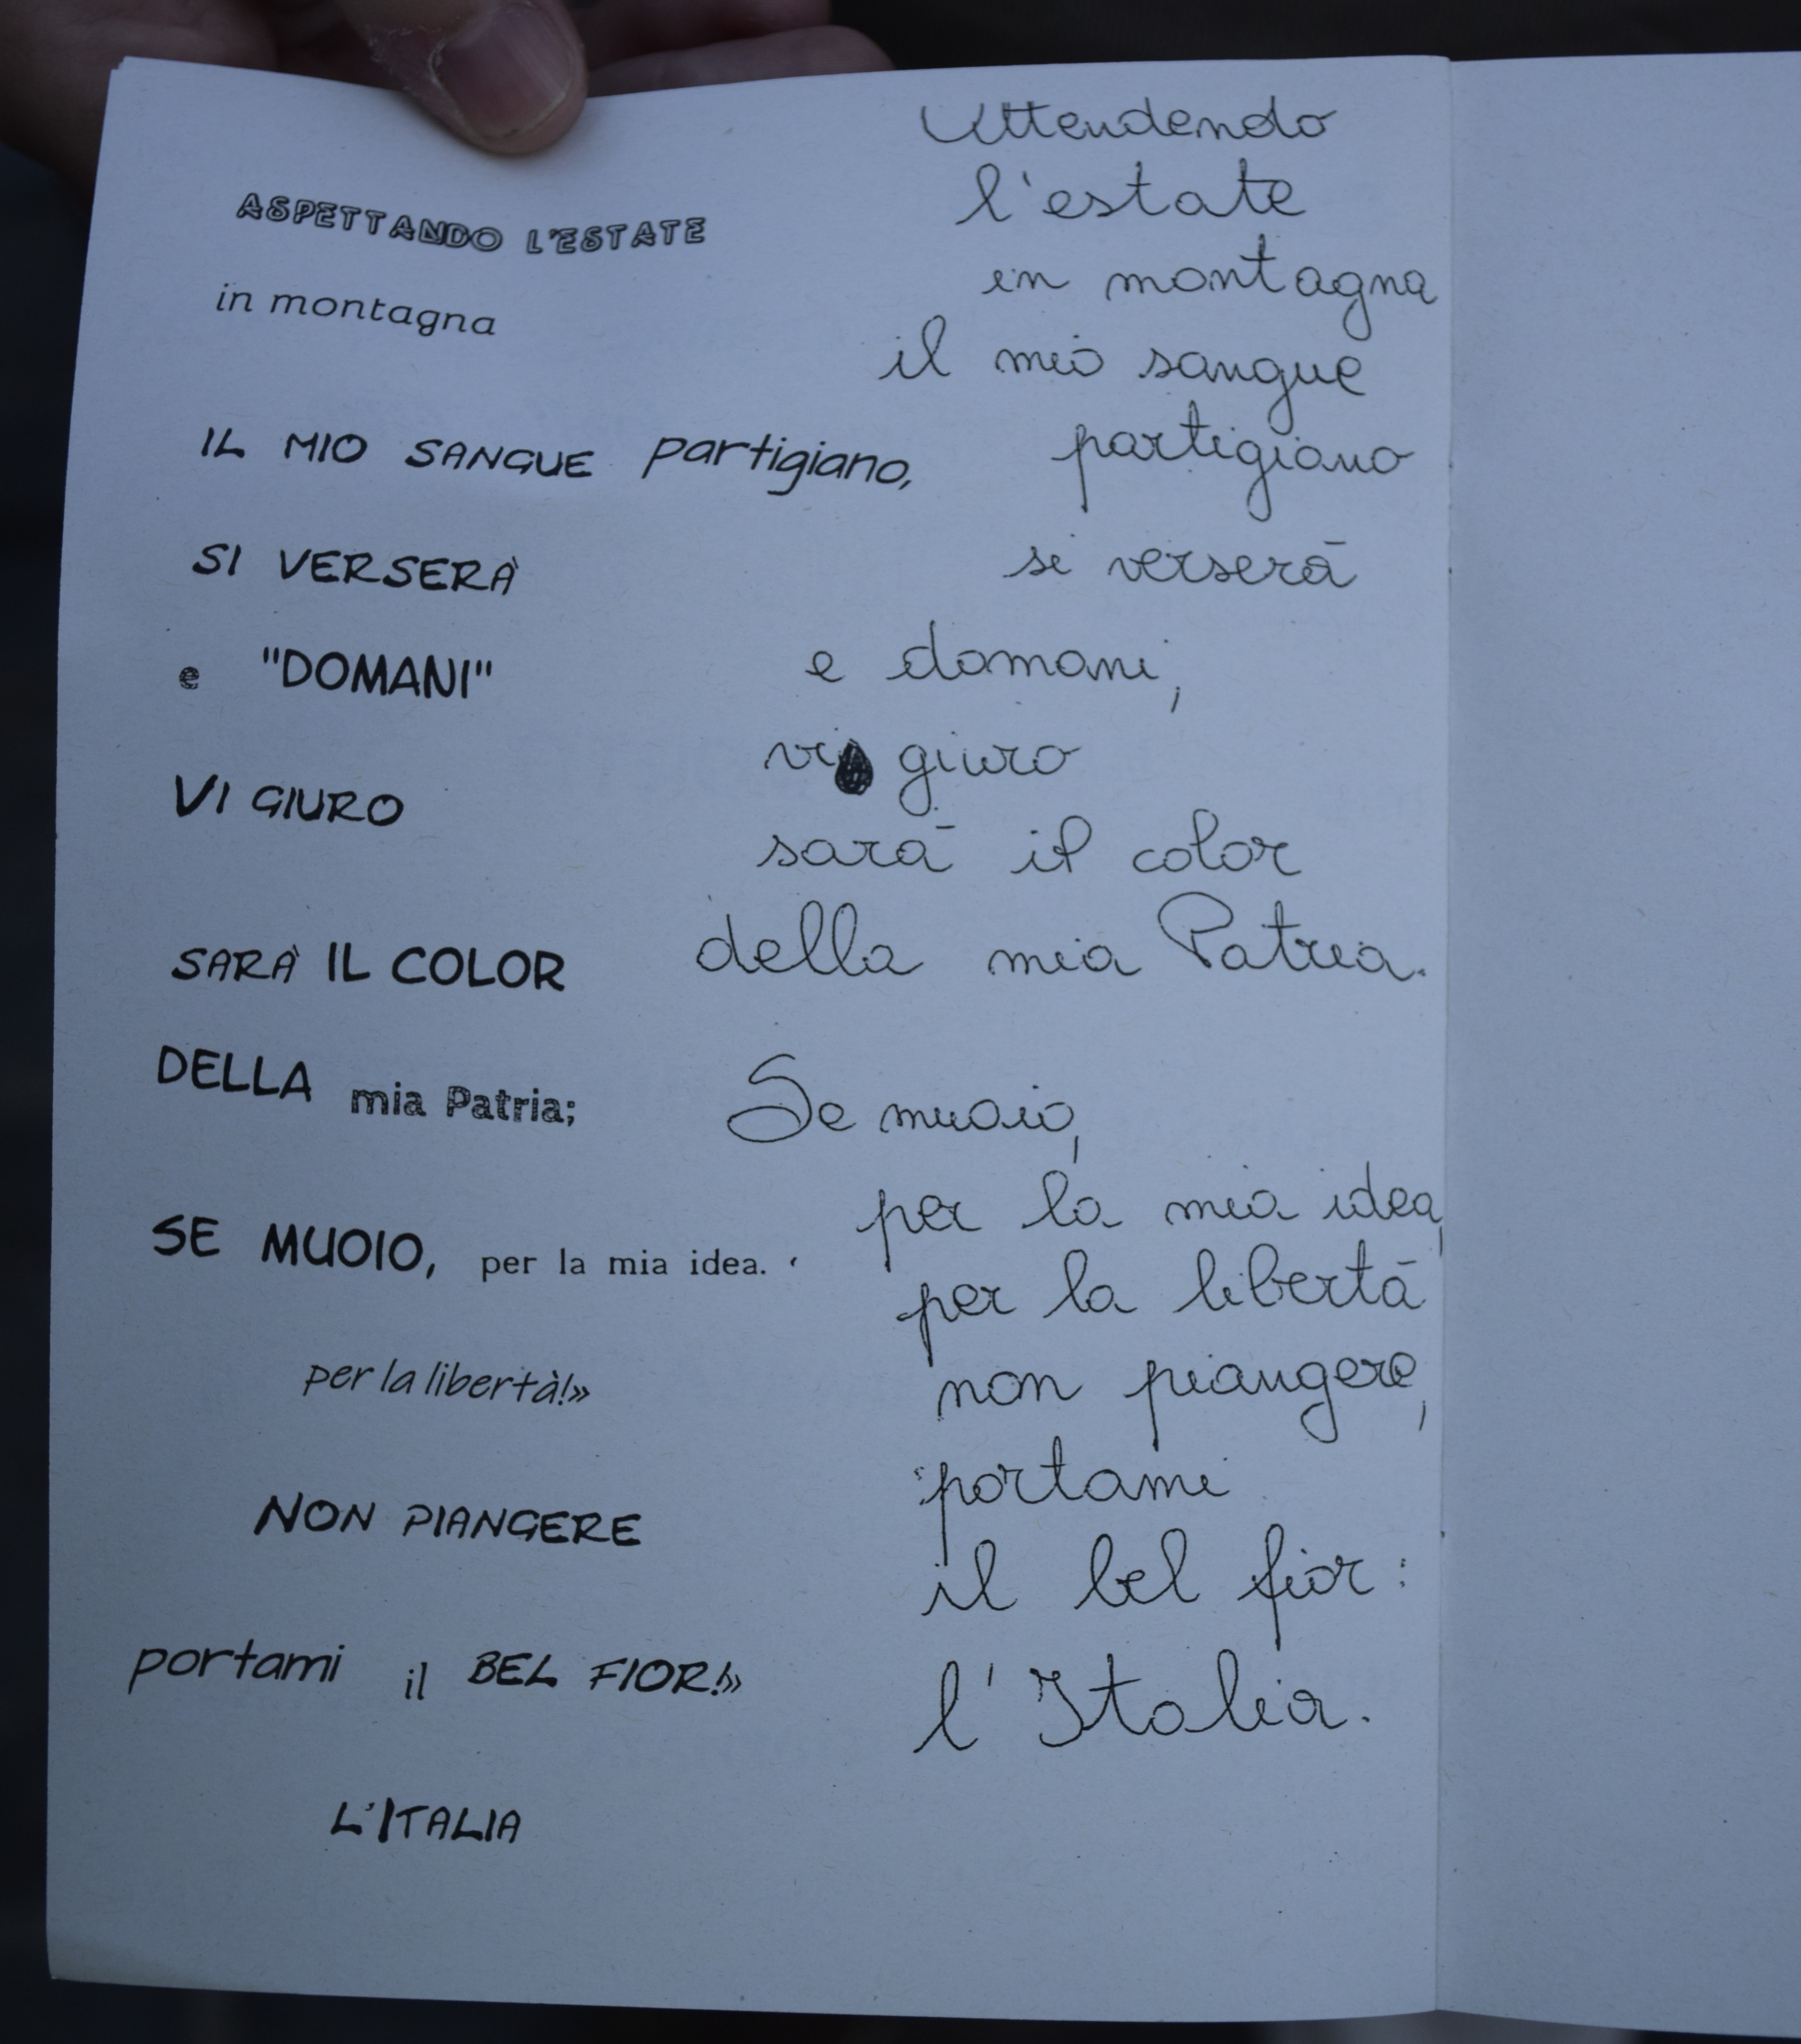 ASPETTANDO L'ESTATE
in montagna
IL MIO SANGUE partigiano,
SI VERSERÀ
e "DOMANI"
VI GIURO
SARÀ IL COLOR
DELLA mia Patria;
SE MUOIO, per la mia idea.
per la libertà!»
NON PIANGERE
portami il BEL FIOR!»
L'ITALIA
Attendendo
l'estate
in montagna
il mio sangue
partigiano
si verserà
e domani,
vi giuro
sarà il color
della mia Patria.
Se muoio,
per la mia idea,
per la libertà
non piangere,
portami
il bel fior:
l'Italia.